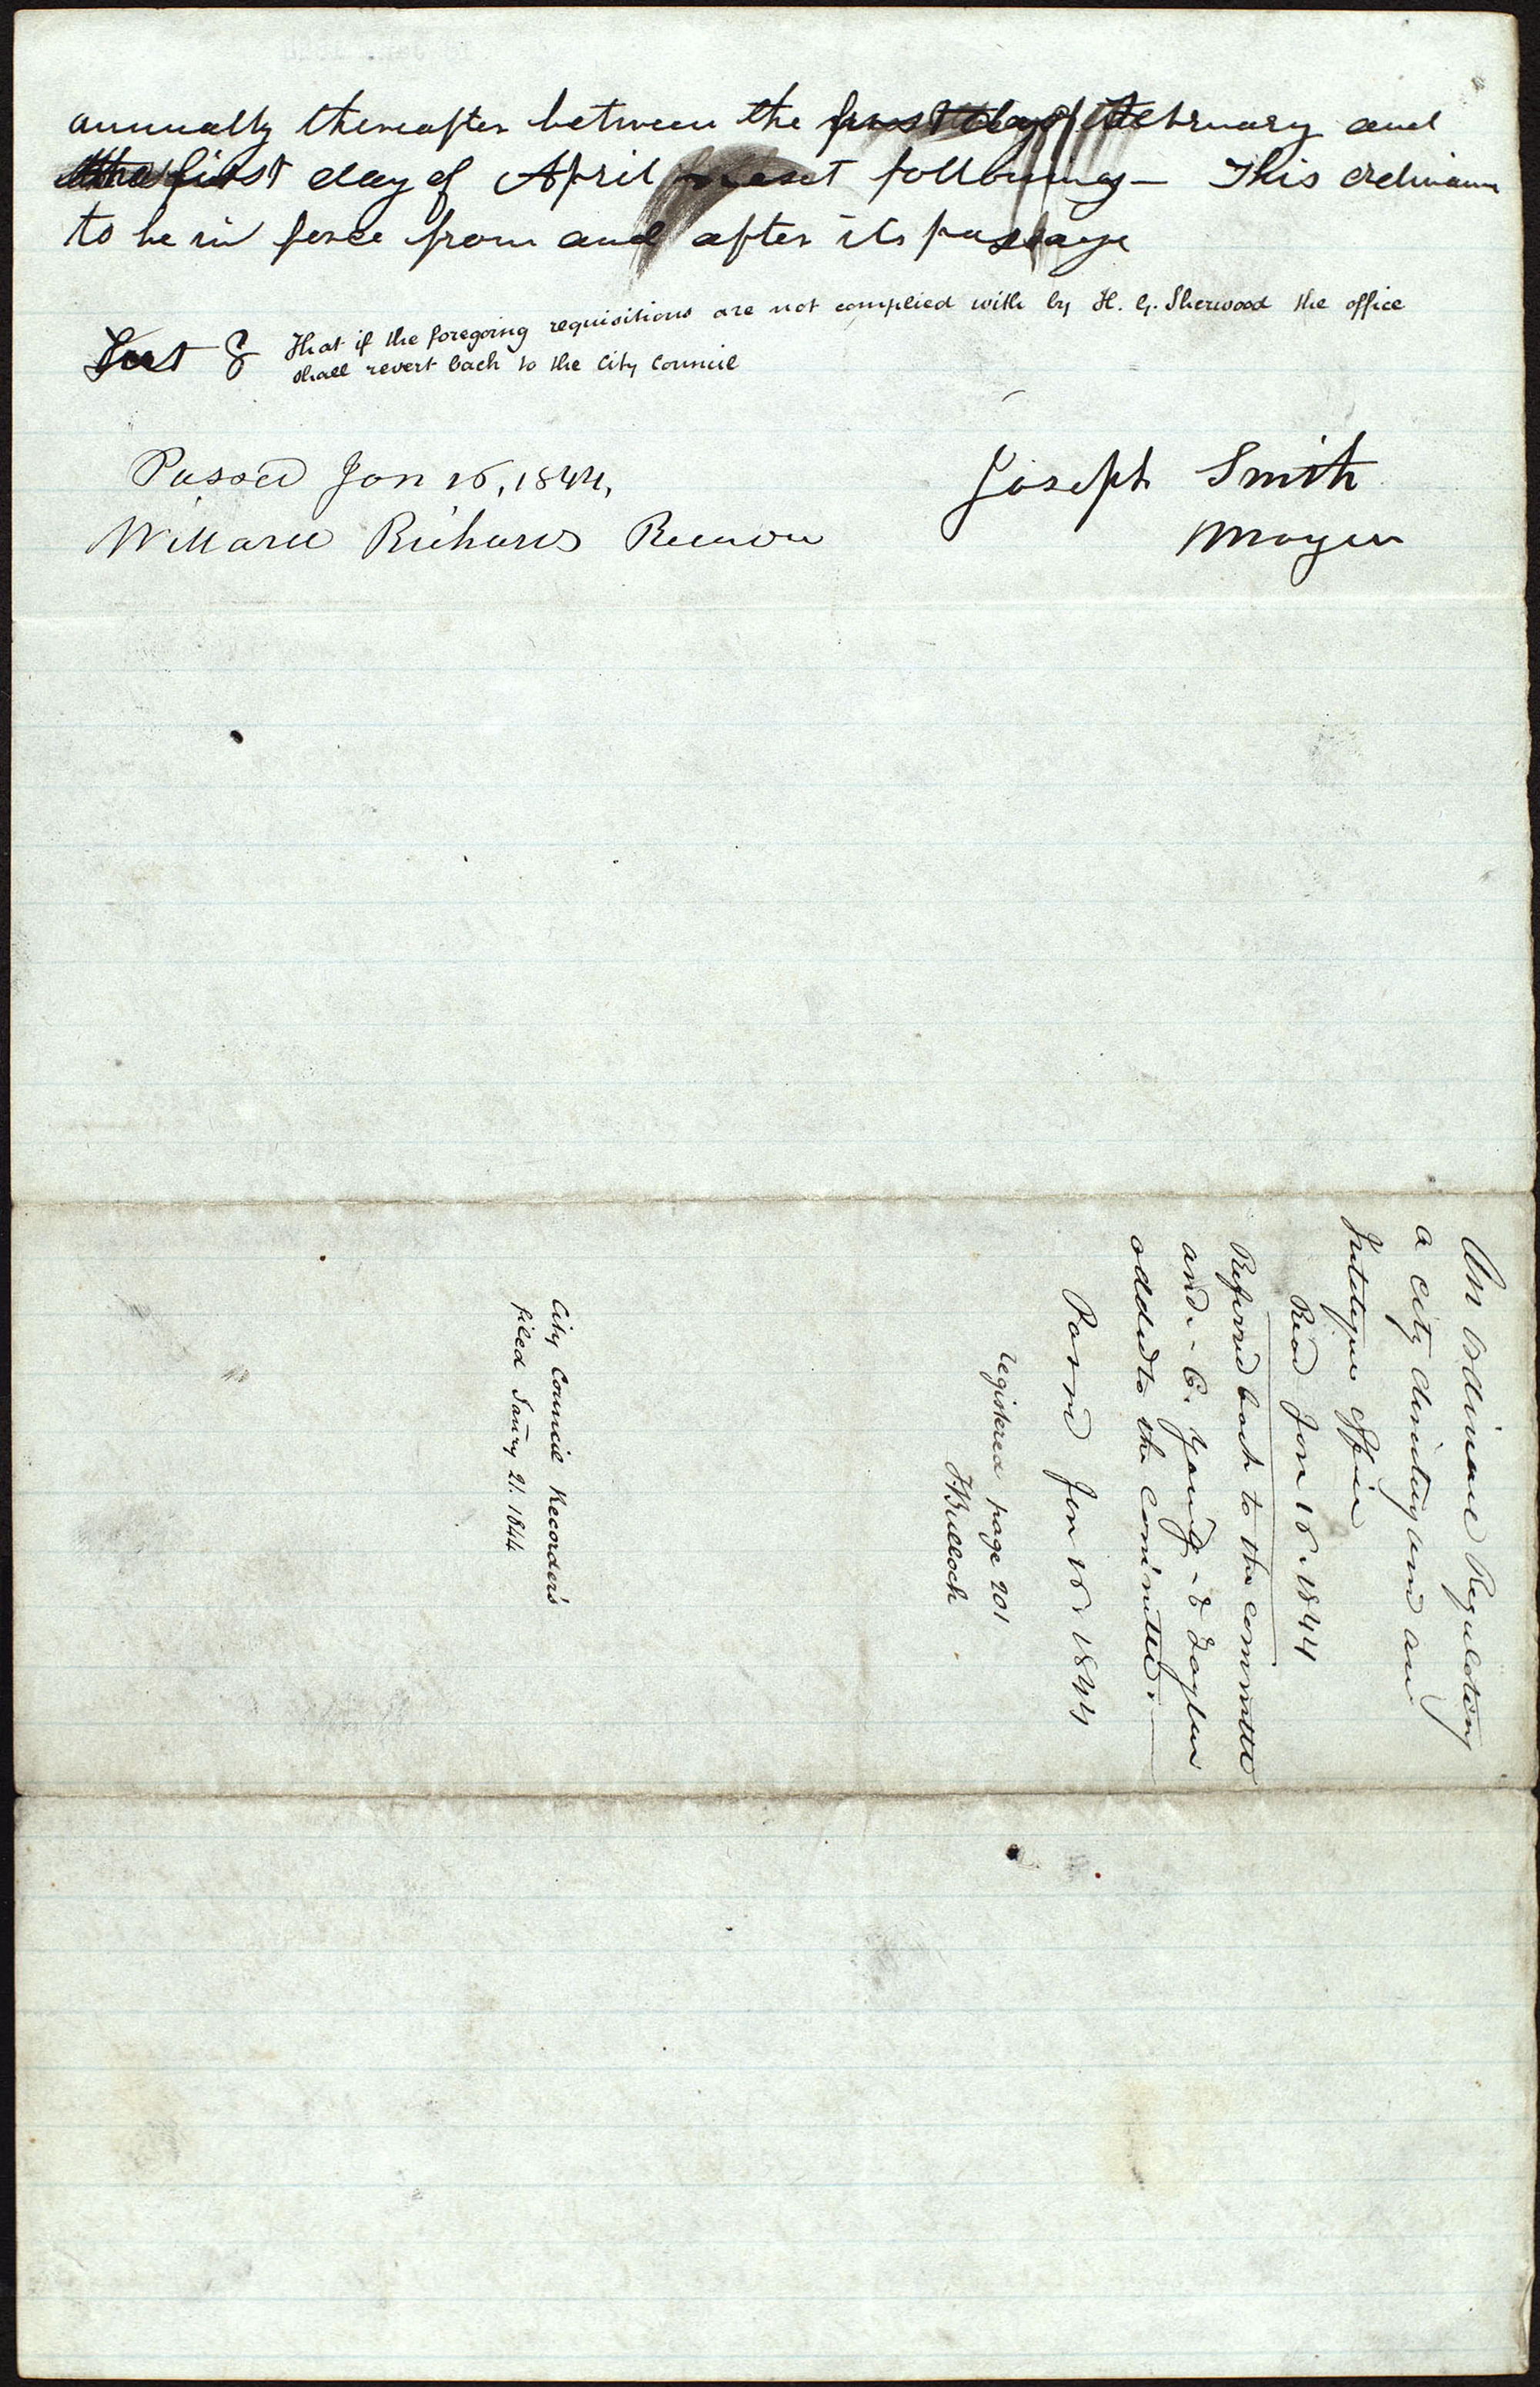 annually thereafter between the first day of February and
the first day of April next following — This ordinance
to be in force from and after its passage
Sect 8 That if the foregoing requisitions are not complied with by H. G. Sherwood the office
shall revert back to the City Council
Passed Jan 16, 1844,
Joseph Smith
Willard Richards Recorder
Mayor
An Ordinance Regulating
a city directory and an
Intelligence Office
Read Jan 16. 1844
Referred back to the committee
and. - B. Young - & Taylor
added to the committee. —
Passed Jan 16. 1844
registered page 201
T. Bullock
City Council Recorder's
filed Janry 21. 1844